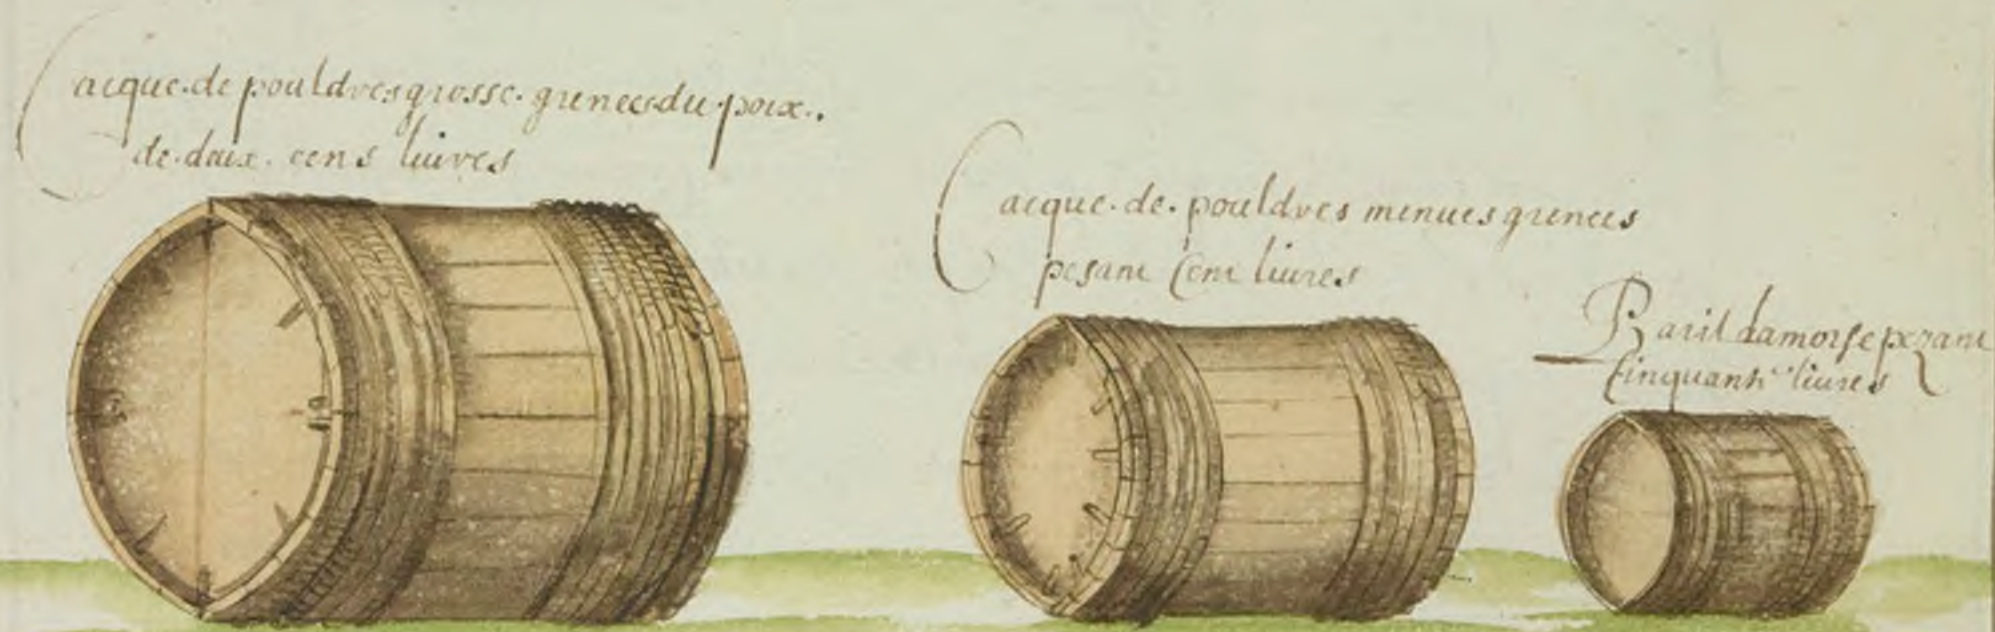 Cacque de pouldres grosse grenees du poix
de deux cens livres
Cacque de pouldres menues grenees
pesant Cent livres
Baril damorse pezant
Cinquante livres